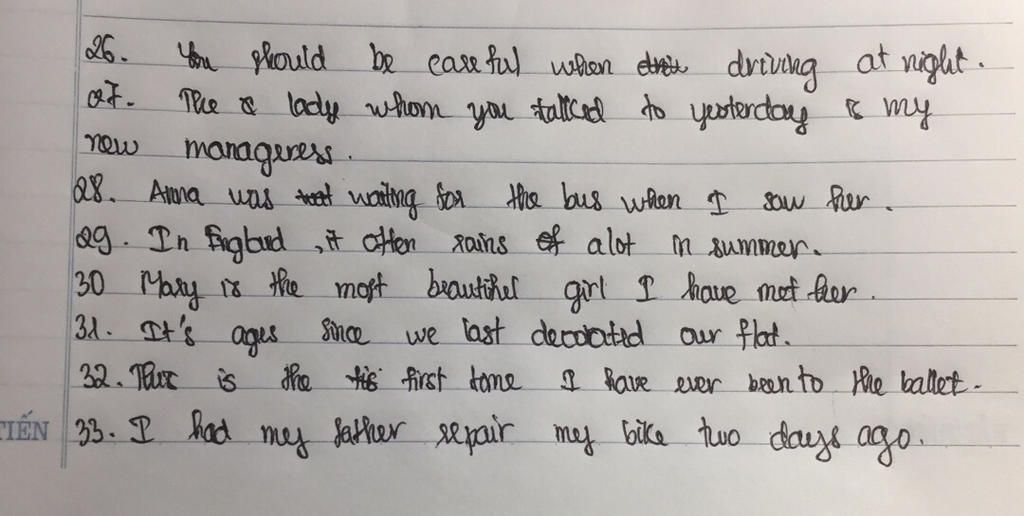 26. You should be careful when driving at night.
27. The lady whom you talked to yesterday is my
new manageress.
28. Anna was waiting for the bus when I saw her.
29. In England, it often rains a lot in summer.
30 Mary is the most beautiful girl I have met her.
31. It's ages since we last decorated our flat.
32. This is the first time I have ever been to the ballet.
TIẾN
33. I had my father repair my bike two days ago.